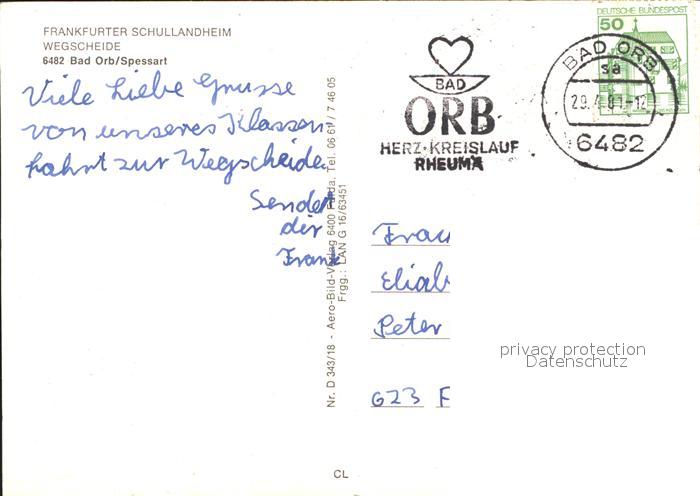 FRANKFURTER SCHULLANDHEIM
WEGSCHEIDE
6482 Bad Orb/Spessart
Viele Liebe Grusse
von unseres Klassen-
fahrt zur Wegscheide.
Sendet
dir
Frank
Nr. D 343/18 - Aero-Bild-Verlag 6400 Fulda, Tel. 06 61 / 7 46 05
Frgg.: LAN G 16/63451
CL
BAD
ORB
HERZ·KREISLAUF
RHEUMA
DEUTSCHE BUNDESPOST
50
BAD ORB
sa
6482
Frau
Eliab
Peter
623 F
privacy protection
Datenschutz